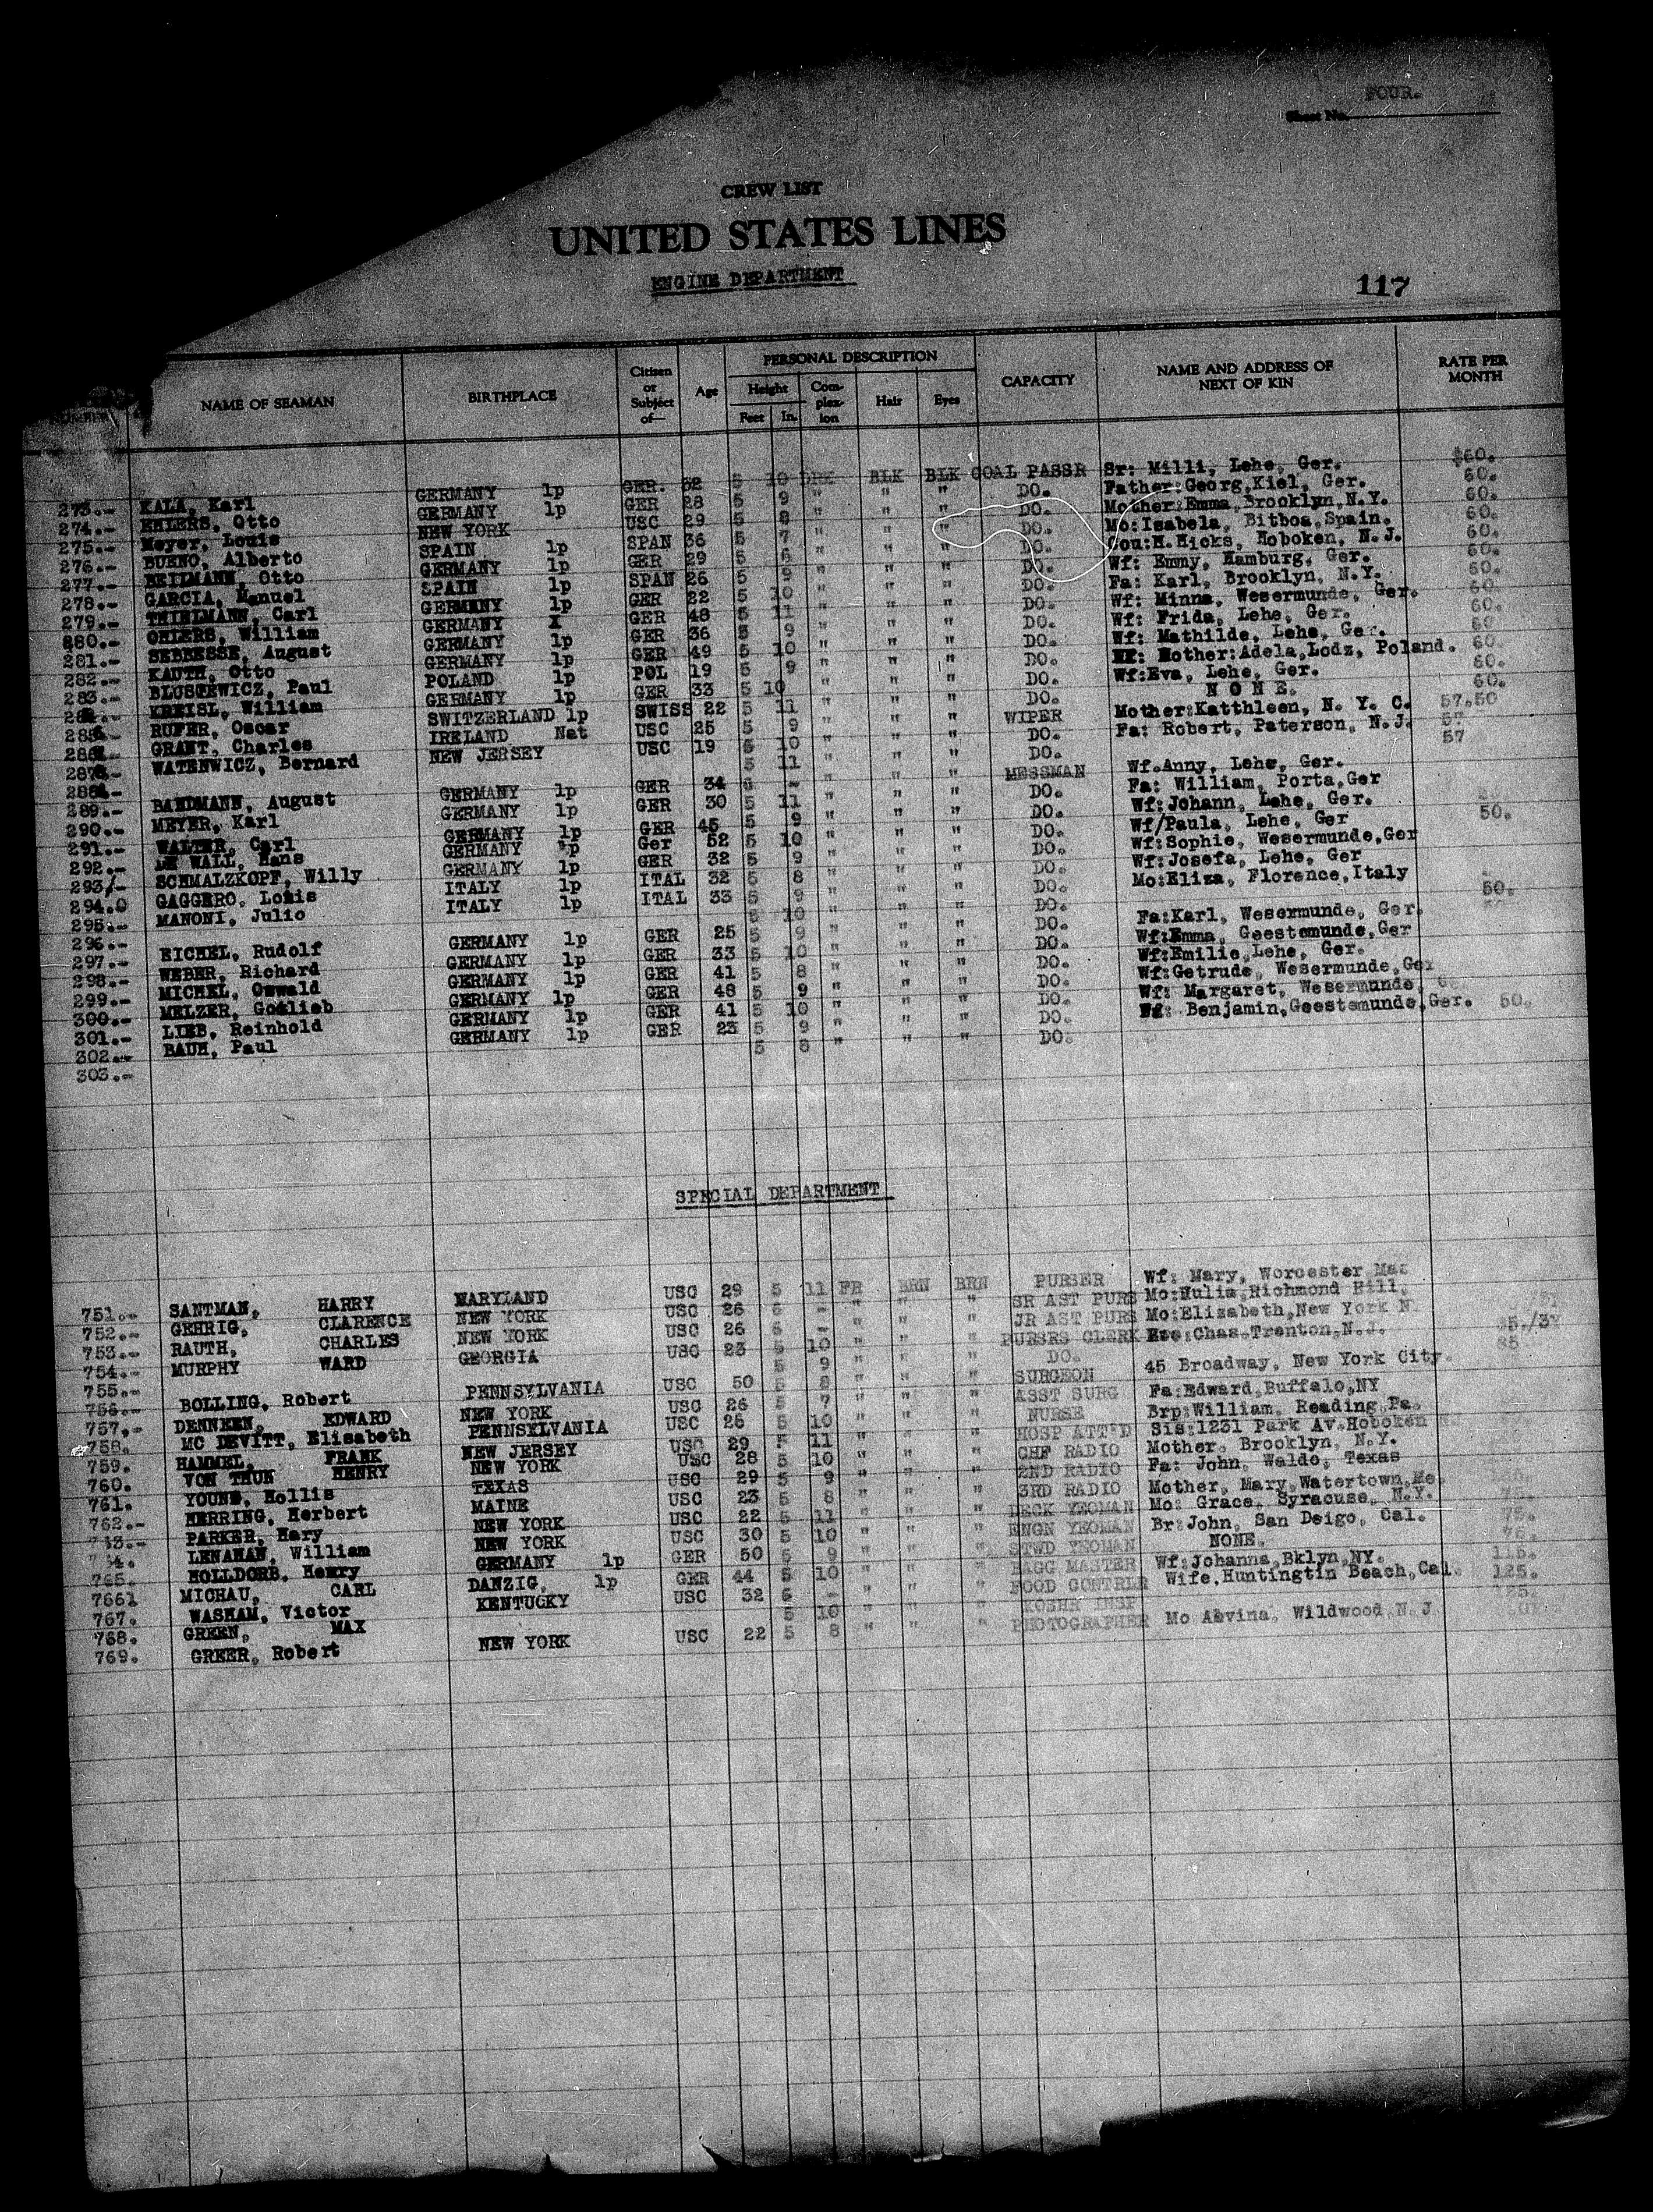 FOUR.
Sheet No.
CREW LIST
UNITED STATES LINES
ENGINE DEPARTMENT
117
NUMBER NAME OF SEAMAN BIRTHPLACE Citizen or Subject of— Age PERSONAL DESCRIPTION Height Feet In. Com-plex-ion Hair Eyes CAPACITY NAME AND ADDRESS OF NEXT OF KIN RATE PER MONTH
273.- KALA, Karl GERMANY lp GER. 32 5 10 DRK BLK BLK COAL PASSR Sr: Milli, Lehe, Ger. $60.
274.- EHLERS, Otto GERMANY lp GER 28 5 9 " " " DO. Father:Georg,Kiel, Ger. 60.
275.- Meyer, Louis NEW YORK USC 29 5 8 " " " DO. Mother:Emma,Brooklyn,N.Y. 60.
276.- BUENO, Alberto SPAIN lp SPAN 36 5 7 " " " DO. Mo:Isabela, Bitboa,Spain. 60.
277.- BEILMANN, Otto GERMANY lp GER 29 5 6 " " " DO. Cou:H.Hicks, Hoboken, N.J. 60.
278.- GARCIA, Manuel SPAIN lp SPAN 26 5 9 " " " DO. Wf: Emmy, Hamburg, Ger. 60.
279.- THIELMANN, Carl GERMANY lp GER 22 5 10 " " " DO. Fa: Karl, Brooklyn, N.Y. 60.
280.- OHLERS, William GERMANY X GER 48 5 11 " " " DO. Wf: Minna, Wesermunde, Ger. 60
281.- SEBBESSE, August GERMANY lp GER 36 5 9 " " " DO. Wf: Frida, Lehe, Ger. 60.
282.- KAUTH, Otto GERMANY lp GER 49 5 10 " " " DO. Wf: Mathilde, Lehe, Ger. 60
283.- BLUSTEWICZ, Paul POLAND lp POL 19 5 9 " " " DO. Mother:Adela,Lodz, Poland. 60.
284.- KREISL, William GERMANY lp GER 33 5 10 " " " DO. Wf:Eva, Lehe, Ger. 60.
285 RUFER, Oscar SWITZERLAND lp SWISS 22 5 11 " " " DO. N O N E. 60.
286 GRANT, Charles IRELAND Nat USC 25 5 9 " " " WIPER Mother:Katthleen, N. Y. C. 57.50
287 WATENWICZ, Bernard NEW JERSEY USC 19 5 10 " " " DO. Fa: Robert, Paterson, N.J. 57
288 5 11 " " " DO. 57
289.- BANDMANN, August GERMANY lp GER 34 6 - " " " MESSMAN Wf.Anny, Lehe, Ger.
290.- MEYER, Karl GERMANY lp GER 30 5 11 " " " DO. Fa: William, Porta,Ger
291.- WALTER, Carl GERMANY lp GER 45 5 9 " " " DO. Wf:Johann, Lehe, Ger.
292.- DE WALL, Hans GERMANY lp Ger 52 5 10 " " " DO. Wf/Paula, Lehe, Ger 50.
293/- SCHMALZKOPF, Willy GERMANY lp GER 32 5 9 " " " DO. Wf:Sophie, Wesermunde,Ger
294.0 GAGGERO, Louis ITALY lp ITAL 32 5 8 " " " DO. Wf:Josefa, Lehe, Ger
295.- MANONI, Julio ITALY lp ITAL 33 5 9 " " " DO. Mo:Eliza, Florence,Italy
296.- 5 10 " " " DO. 50.
297.- EICHEL, Rudolf GERMANY lp GER 25 5 9 " " " DO. Fa:Karl, Wesermunde, Ger.
298.- WEBER, Richard GERMANY lp GER 33 5 10 " " " DO. Wf:Emma, Geestemunde,Ger
299.- MICHEL, Oswald GERMANY lp GER 41 5 8 " " " DO. Wf:Emilie,Lehe, Ger.
300.- MELZER, Gottlieb GERMANY lp GER 48 5 9 " " " DO. Wf:Getrude, Wesermunde,Ger
301.- LIEB, Reinhold GERMANY lp GER 41 5 10 " " " DO. Wf: Margaret, Wesermunde,
302.- BAUM, Paul GERMANY lp GER 23 5 9 " " " DO. Benjamin,Geestemunde,Ger. 50.
303.- 5 8 " " " DO.
SPECIAL DEPARTMENT
751.- SANTMAN, HARRY MARYLAND USC 29 5 11 FR BRN BRN PURSER Wf: Mary, Worcester Mas
752.- GEHRIG, CLARENCE NEW YORK USC 26 6 - " " " SR AST PURS Mo:Hulia,Richmond Hill,
753.- RAUTH, CHARLES NEW YORK USC 26 6 - " " " JR AST PURS Mo:Elizabeth,New York N.
754.- MURPHY WARD GEORGIA USC 23 5 10 " " " PURSRS CLERK Chas.Trenton,N.J.
755.- 5 9 " " " DO. 85
756.- BOLLING, Robert PENNSYLVANIA USC 50 5 8 " " " SURGEON 45 Broadway, New York City.
757.- DENNEEN, EDWARD NEW YORK USC 26 5 7 " " " ASST SURG Fa:Edward,Buffalo,NY
758. MC DEVITT, Elisabeth PENNSYLVANIA USC 26 5 10 " " " NURSE Brp:William, Reading,Pa.
759. HAMMEL, FRANK NEW JERSEY USC 29 5 11 " " " HOSP ATT'D Sis:1231 Park Av.Hoboken
760. VON THUN HENRY NEW YORK USC 28 5 10 " " " CHF RADIO Mother. Brooklyn, N.Y.
761. YOUNG, Hollis TEXAS USC 29 5 9 " " " 2ND RADIO Fa: John, Waldo, Texas
762.- HERRING, Herbert MAINE USC 23 5 8 " " " 3RD RADIO Mother, Mary,Watertown,Me.
763.- PARKER, Hary NEW YORK USC 22 5 11 " " " DECK YEOMAN Mo: Grace, Syracuse, N.Y. 75.
764. LENAHAN, William NEW YORK USC 30 5 10 " " " ENGN YEOMAN Br:John, San Deigo, Cal. 75.
765. HOLLDORB, Henry GERMANY lp GER 50 5 9 " " " STWD YEOMAN NONE. 75.
7661 MICHAU, CARL DANZIG, lp GER 44 5 10 " " " BAGG MASTER Wf:Johanna,Bklyn,NY. 115.
767. WASHAM, Victor KENTUCKY USC 32 6 - " " " FOOD CONTRLR Wife,Huntingtin Beach,Cal. 125.
768. GREEN, MAX 5 10 " " " KOSHR INSP 125.
769. GREER, Robert NEW YORK USC 22 5 8 " " " PHOTOGRAPHER Mo Alvina, Wildwood N.J